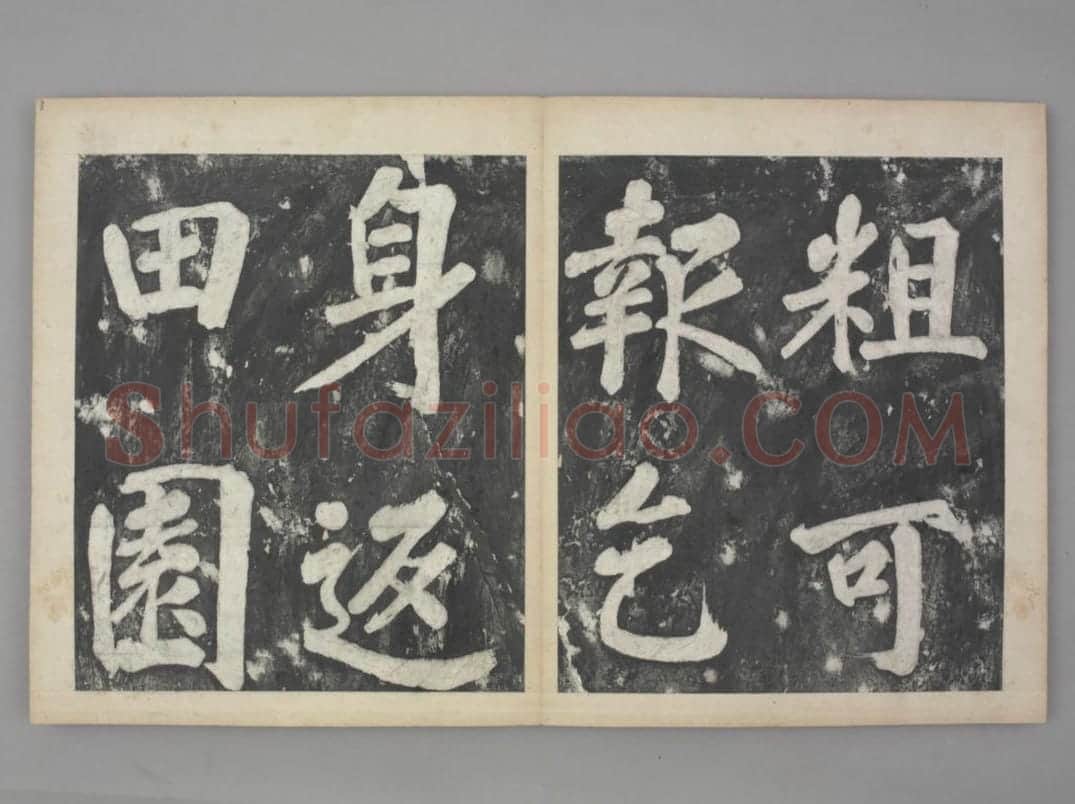 粗可
報乞
身返
田園
Shufaziliao.COM